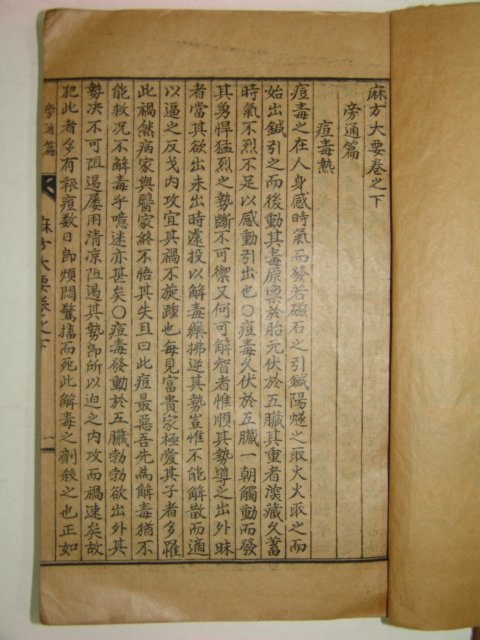 麻方大要卷之下
旁通篇
痘毒熱
痘毒之在人身感時氣而發若磁石之引鍼陽燧之取火火取之而
始出鍼引之而後動其毒原稟於胎元伏於五臟其重者深藏久蓄
時氣不烈不足以感動引出也○痘毒久伏於五臟一朝觸動而發
其勇悍猛烈之勢斷不可禦又何可解智者惟順其勢導之出外昧
者當其欲出未出時遽投以解毒藥拂逆其勢豈惟不能解散而適
以逼之反戈內攻宜其禍不旋踵也每見富貴家極愛其子者多罹
此禍然病家與醫家終不悟其失且曰此痘最惡吾先為解毒猶不
能救況不解毒乎噫迷亦甚矣○痘毒發動於五臟勃勃欲出外其
勢決不可阻遏屢用清凉阻遏其勢卽所以迫之內攻而禍速矣故
犯此者多有報痘數日卽煩悶驚搐而死此解毒之劑殺之也正如
旁通篇
麻方大要卷之下
一